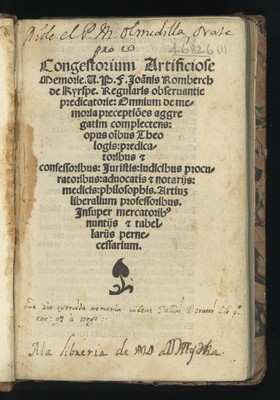 Pide el P. M. Olmedilla orate
pro eo
46826 (1)
Congestorium Artificiose
Memorie. V. P. F. Joānis Romberch
de Kyrspe. Regularis obseruantie
predicatorie: Omnium de me-
moria preceptiōes aggre
gatim complectens:
opus oībus Theo
logis: predica-
toribus ⁊
confessoribus: Juristis: iudicibus procu-
ratoribus: aduocatis ⁊ notarijs:
medicis: philosophis. Artiuȝ
liberalium professoribus.
Insuper mercatoribꝰ
nuntijs ⁊ tabel-
larijs perne-
cessarium.
memoria
A la libreria de